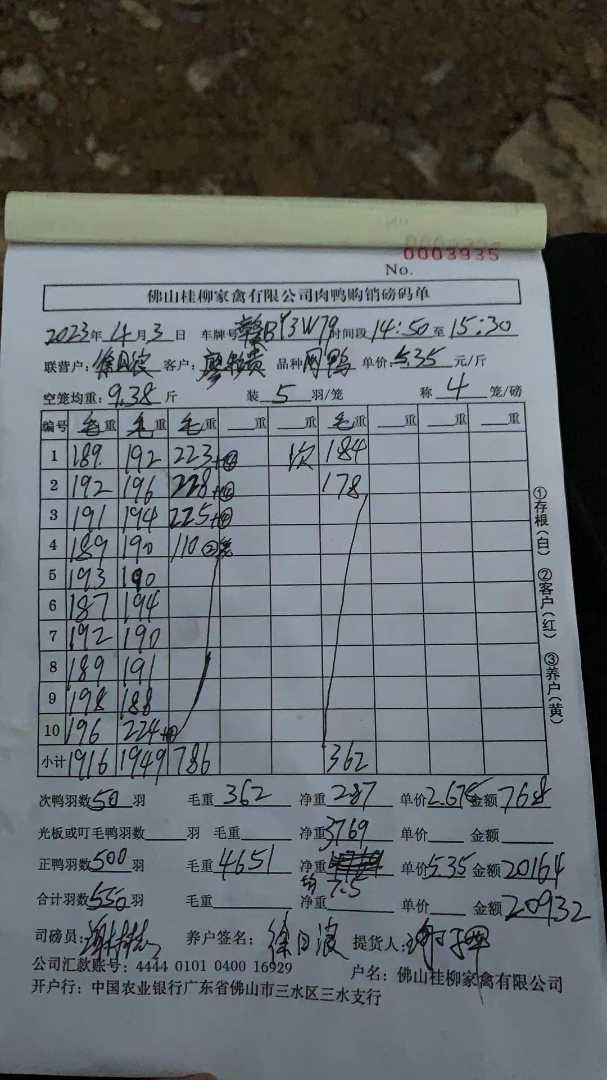 0003935
No.
佛山桂柳家禽有限公司肉鸭购销磅码单
2023年 4月 3日 车牌号 赣BY3W79 时间段 14:50至15:30
联营户: 徐日波 客户: 廖 贵 品种 网鸭 单价: 5.35 元/斤
空笼均重: 9.38 斤 装 5 羽/笼 称 4 笼/磅
编号 毛重 毛重 毛重 重 重 毛重 重 重 重
1 189. 192 223+④ 次 184
2 192 196 228+④ 178
3 191 194 225+④
4 189 190 110 ②笼
5 193 190
6 187 194
7 192 190
8 189 191
9 198 188
10 196 224
小计 1916 1949 786 362
①存根(白) ②客户(红) ③养户(黄)
次鸭羽数 50 羽 毛重 362 净重 287 单价 2.675 金额 768
光板或叮毛鸭羽数 羽 毛重 净重 3769 单价 金额
正鸭羽数 500 羽 毛重 4651 净重 单价 5.35 金额 20164
合计羽数 550 羽 毛重 净重 均 7.5 单价 金额 20932
司磅员: 养户签名: 徐日波 提货人:
公司汇款账号: 4444 0101 0400 16929 户名: 佛山桂柳家禽有限公司
开户行: 中国农业银行广东省佛山市三水区三水支行